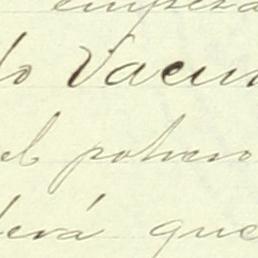 empera
do Vacun
el potrero
berá que